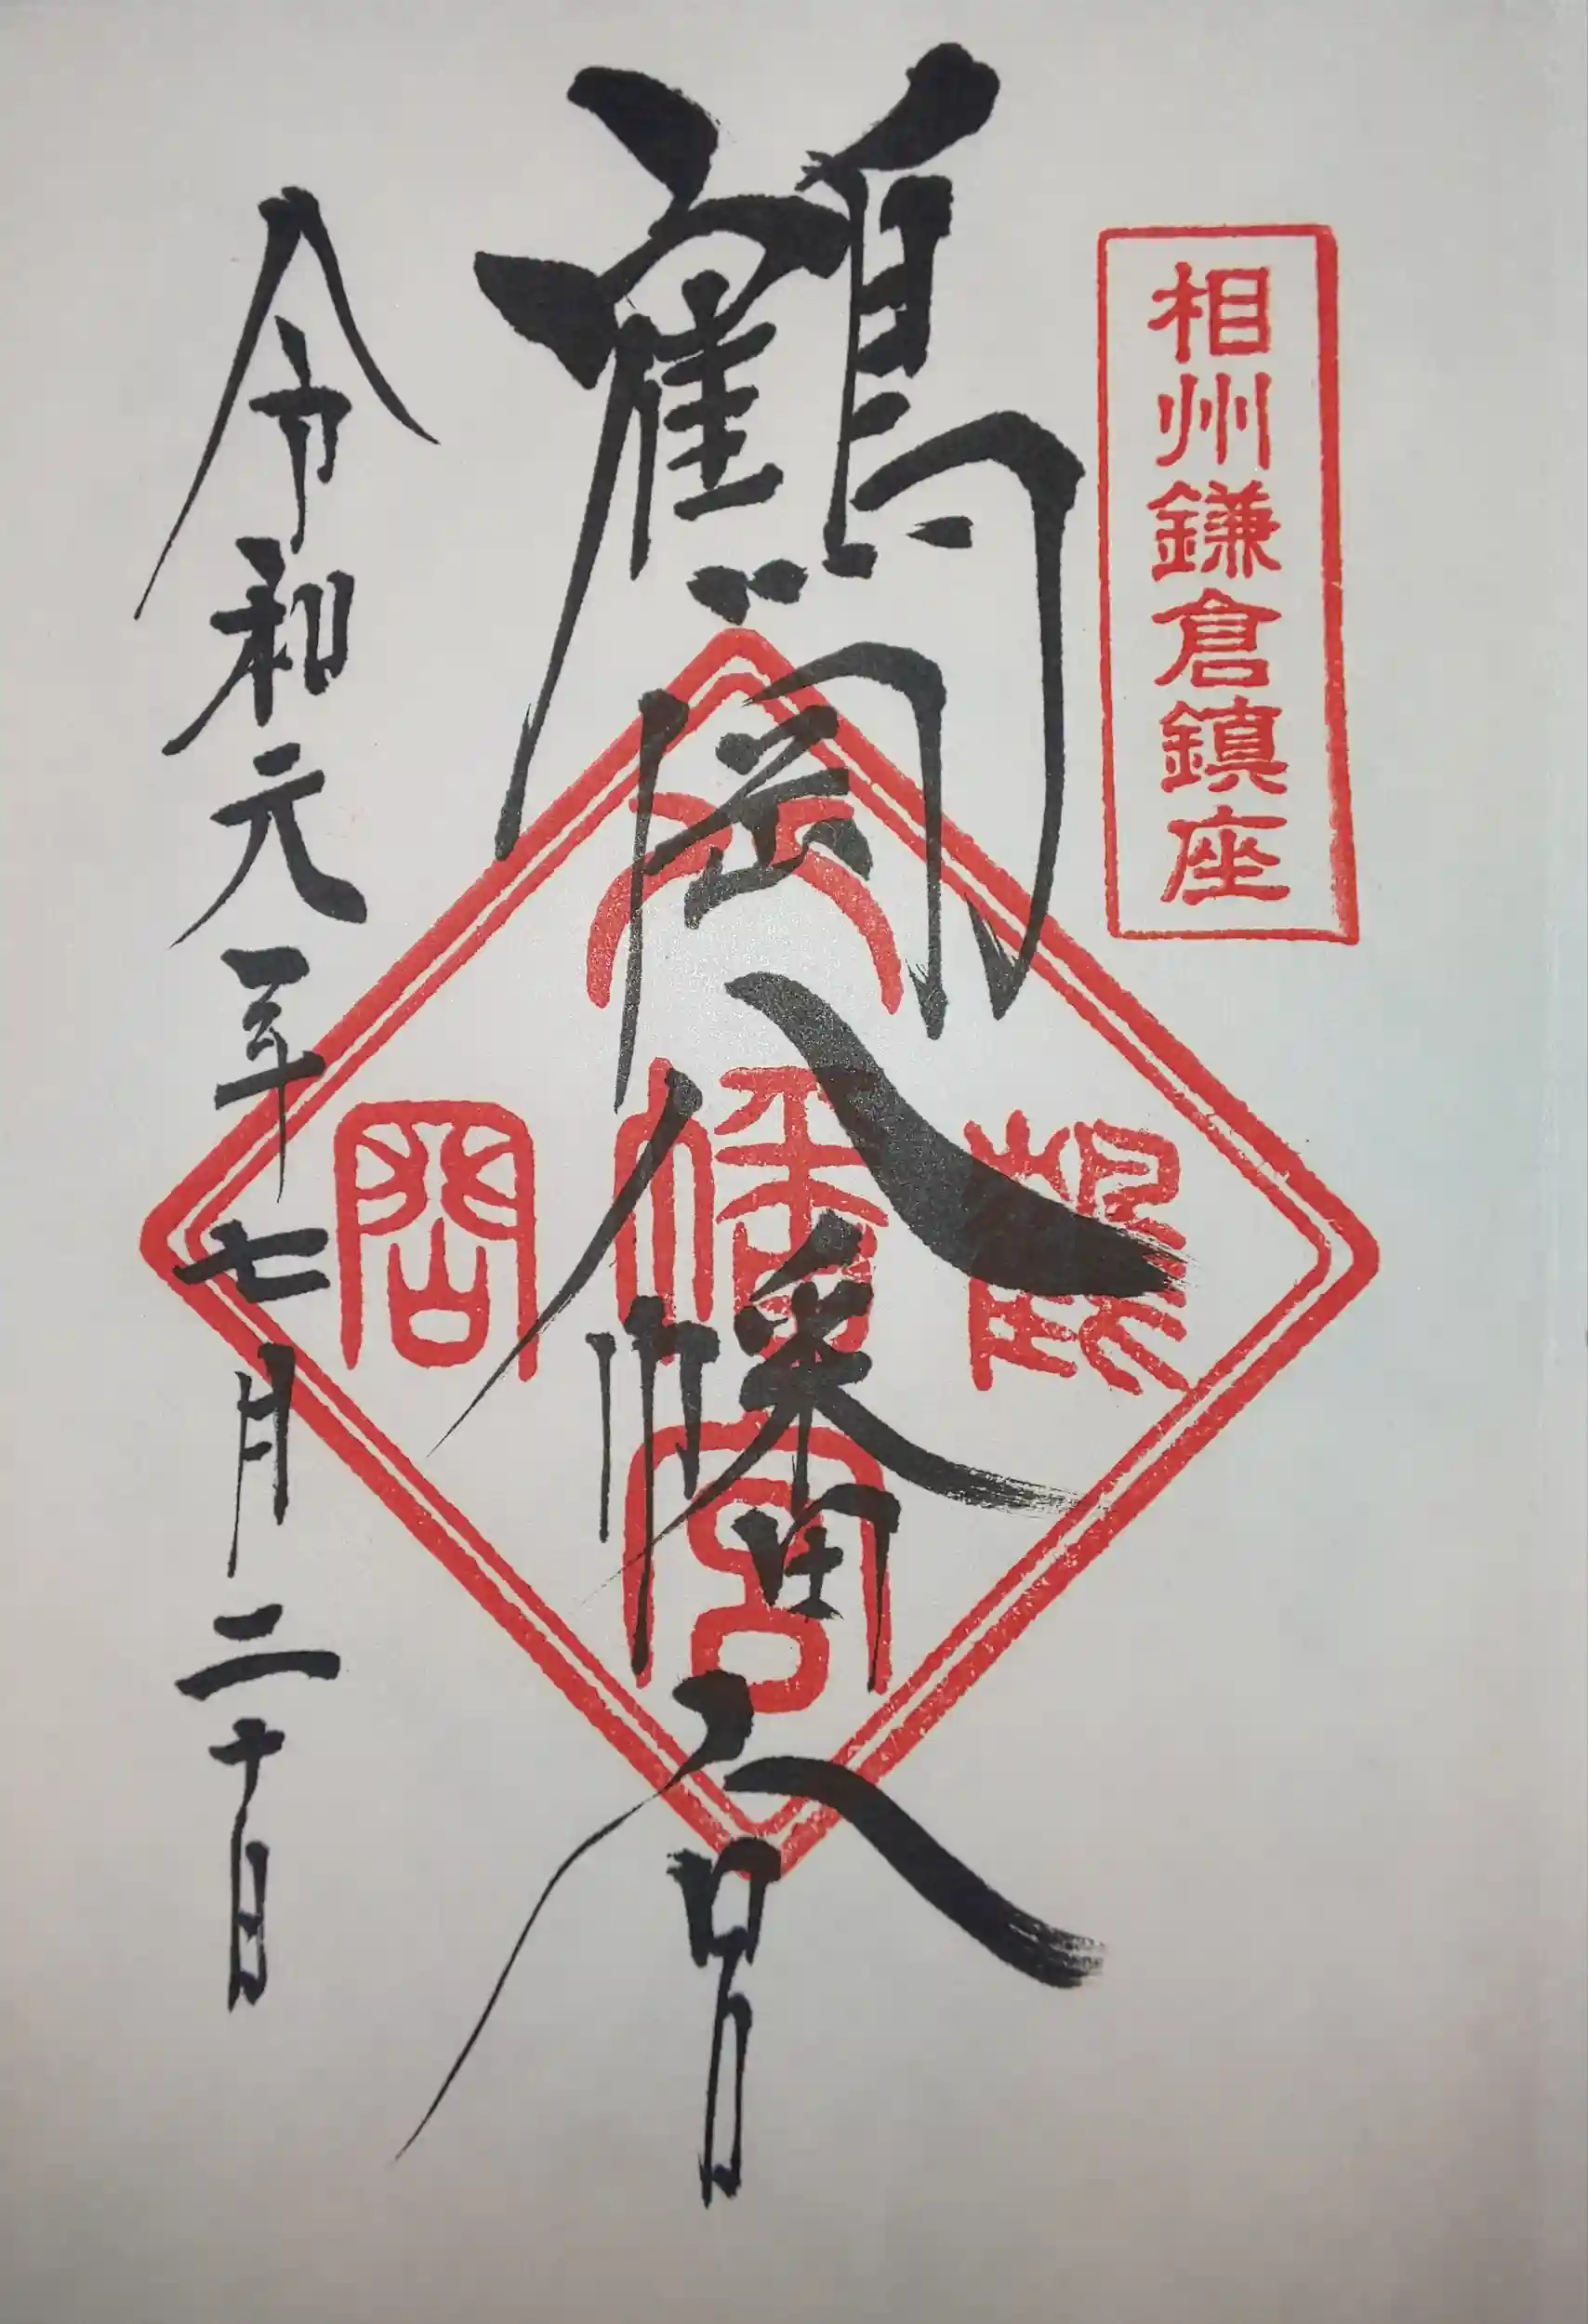 相州鎌倉鎮座
鶴岡八幡宮
鶴岡八幡宮
令和元年七月二十日